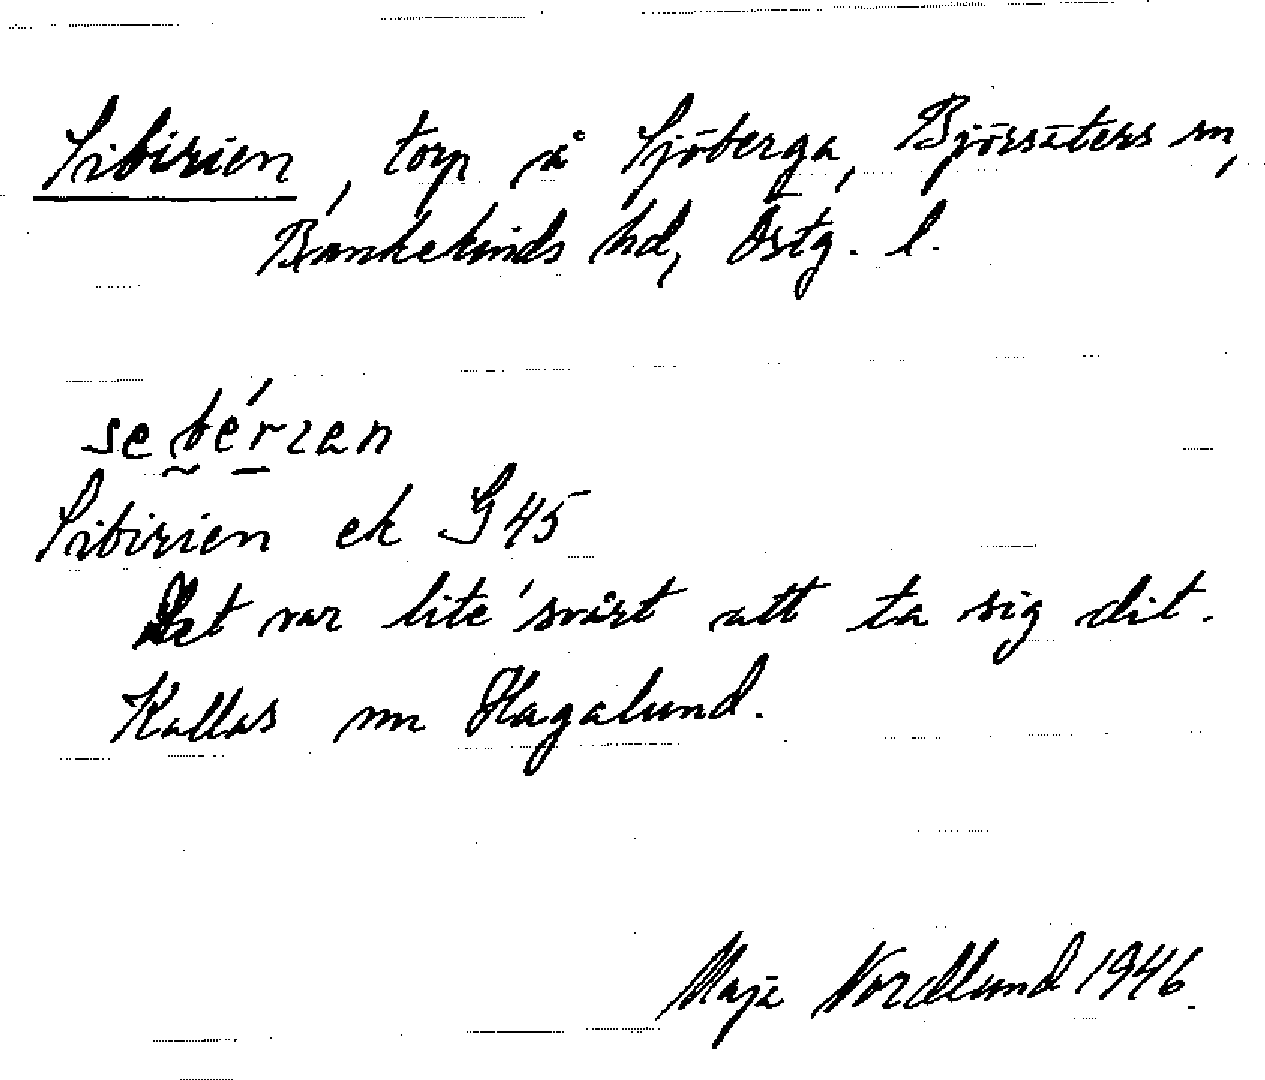 Sibirien, torp å Sjöberga, Björsäters sn,
Bankekinds hd, Östg. l.
Sibirien ek G 45
Det var lite svårt att ta sig dit.
Kallas nu Hagalund.
Maja Nordlund 1946.